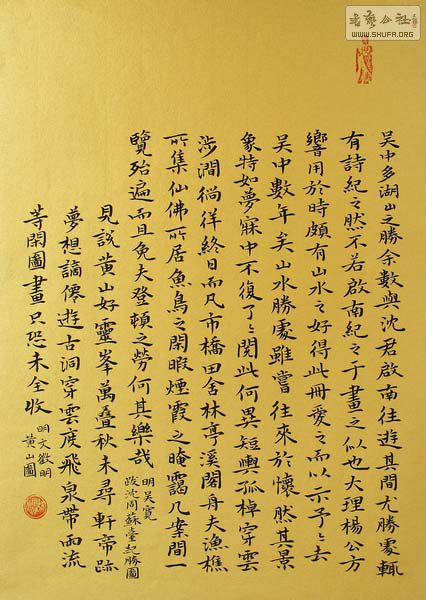 书艺公社
WWW.SHUFA.ORG
吳中多湖山之勝余數與沈君啟南往遊其間尤勝處輒
有詩紀之然不若啟南紀之于畫之似也大理楊公方
嚮用於時頗有山水之好得此冊愛之而以示予〻去
吳中數年矣山水勝處雖嘗往來於懷然其景
象特如夢寐中不復了〻閱此何異短輿孤棹穿雲
涉澗徜徉終日而凡市橋田舍林亭溪閣舟夫漁樵
所集仙佛所居魚鳥之閑暇煙霞之晻靄几案間一
覽殆遍而且免夫登頓之勞何其樂哉
明吳寬
跋沈周蘇臺紀勝圖
見說黃山好靈峯萬疊秋未尋軒帝跡
夢想謫僊遊古洞穿雲度飛泉帶雨流
等閑圖畫只恐未全收
明文徵明
黃山圖